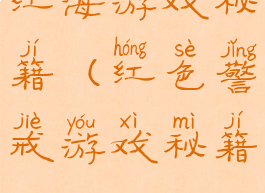 红海游戏秘
jí hóng sè jǐng
籍（红色警
jiè yóu xì mì jí
戒游戏秘籍